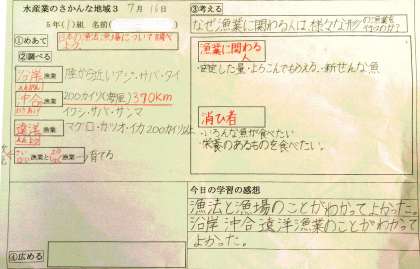 水産業のさかんな地域3 7月16日
5年(1)組 名前(
①めあて
日本の漁法、漁場について調べよう。
②調べる
沿岸漁業 陸から近い アジ・サバ・タイ
えんがん
沖合漁業 200カイリ(海里) 370km
おきあい
イワシ・サバ・サンマ
遠洋漁業 マグロ・カツオ・イカ 200カイリ以上
えんよう
さいばい漁業と
漁業→育てる
③考える
なぜ漁業に関わる人は様々な
漁業に関わる人
・安定した量・よろこんでもらえる、・新せんな魚
消ひ者
・いろんな魚が食べたい
・栄養のあるものを食べたい。
今日の学習の感想
漁法と漁場のことがわかってよかった。
沿岸 沖合 遠洋漁業のことがわかって
よかった。
④広める